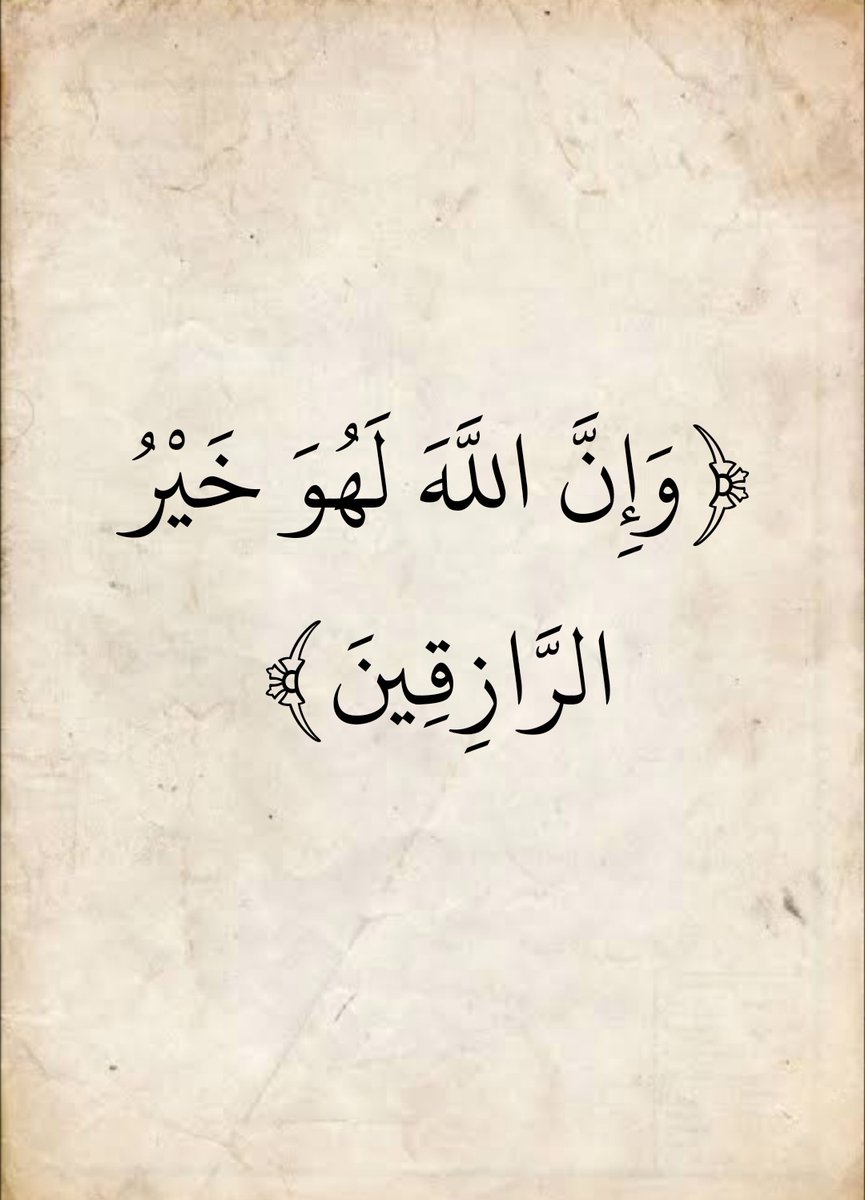 ﴿وَإِنَّ اللَّهَ لَهُوَ خَيْرُ
الرَّازِقِينَ﴾